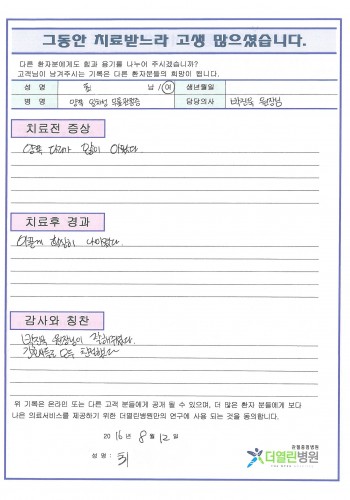 그동안 치료받느라 고생 많으셨습니다.
다른 환자분에게도 힘과 용기를 나누어 주시겠습니까?
고객님이 남겨주시는 기록은 다른 환자분들의 희망이 됩니다.
성 명 최 남 / 여 생년월일
병 명 양쪽 퇴행성 무릎관절증 담당의사 박진욱 원장님
치료전 증상
양쪽 다리가 많이 아팠다.
치료후 경과
이제 굉장히 나아졌다.
감사와 칭찬
박진욱 원장님이 잘해주셨다.
간호사들도 모두 친절했다
위 기록은 온라인 또는 다른 고객 분들에게 공개 될 수 있으며, 더 많은 환자 분들에게 보다
나은 의료서비스를 제공하기 위한 더열린병원만의 연구에 사용 되는 것을 동의합니다.
2016년 8월 12일
성 명 : 최
관절중점병원
더열린병원